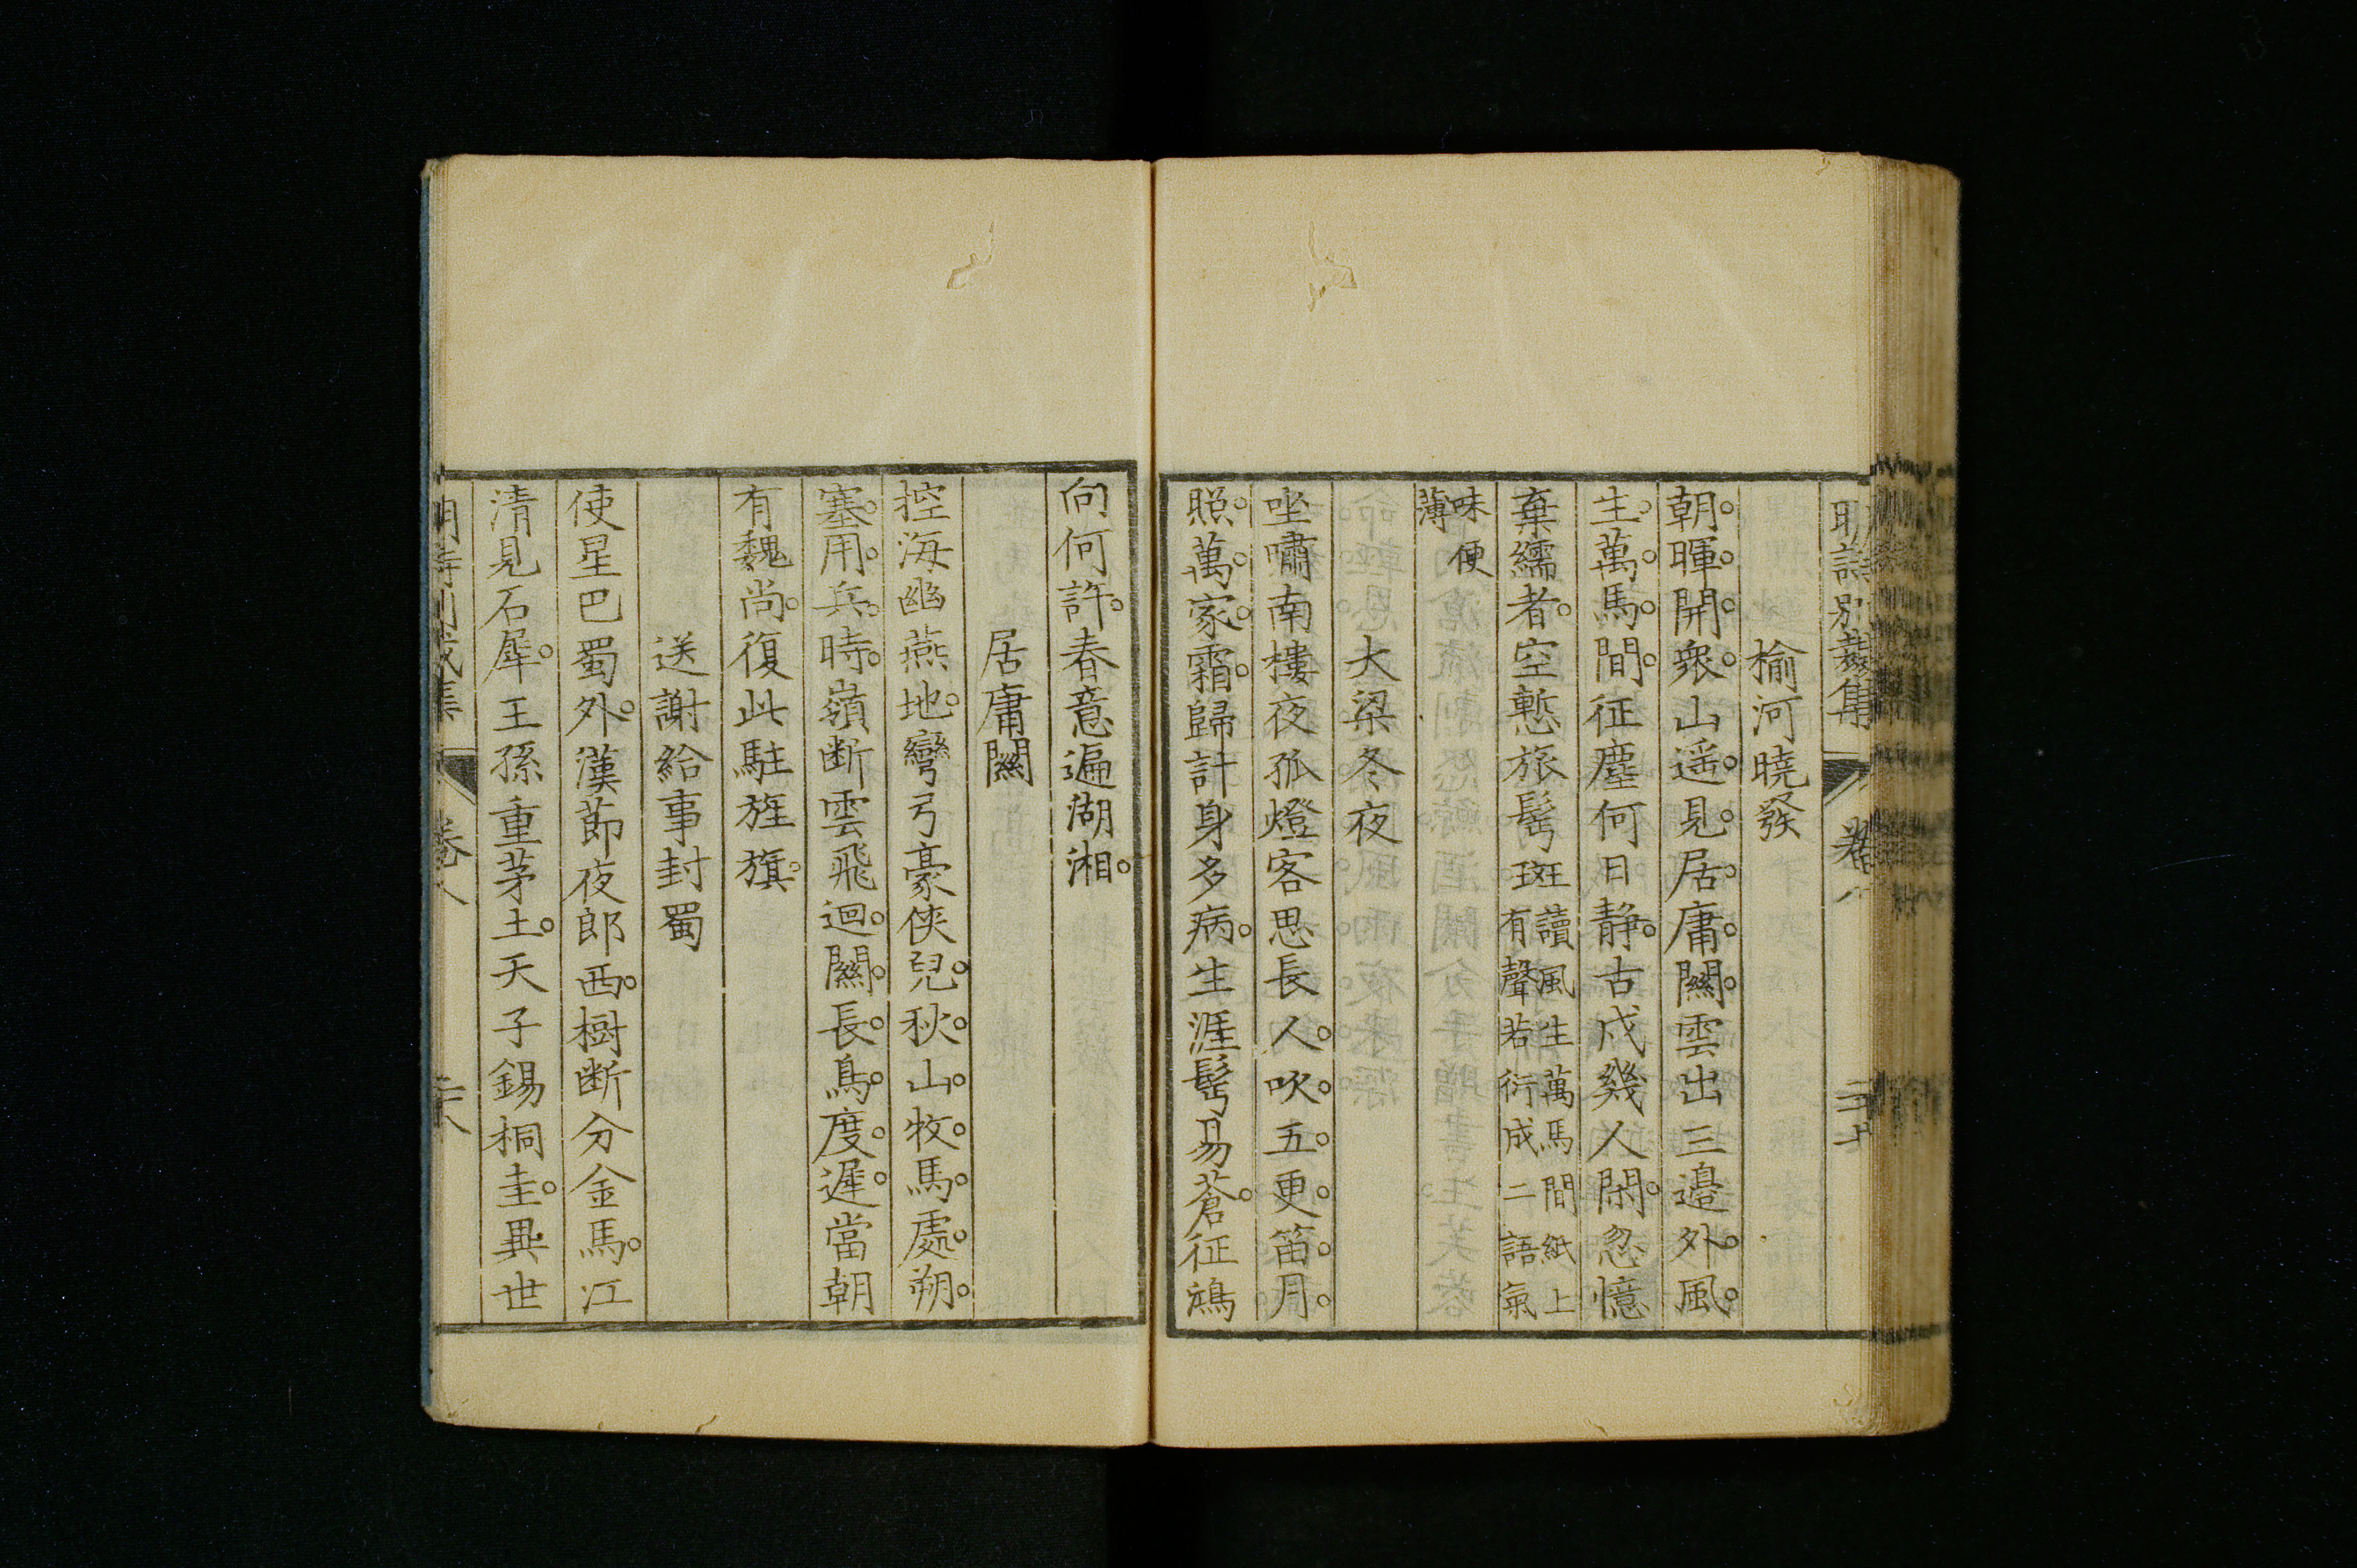 明詩別裁集 卷八
榆河曉發
朝暉開衆山遥見居庸關雲出三邉外風
生萬馬間征塵何日静古戍幾人閑忽憶
棄繻者空慙旅鬂斑讀風生萬馬間紙上
有聲若衍成二語氣
味便
薄
大梁冬夜
坐嘯南樓夜孤燈客思長人吹五更笛月
照萬家霜歸計身多病生涯鬂易蒼征鴻
向何許春意遍湖湘
居庸關
控海幽燕地彎弓豪俠兒秋山牧馬處朔
塞用兵時嶺断雲飛迴關長鳥度遲當朝
有魏尚復此駐旌旗
送謝給事封蜀
使星巴蜀外漢莭夜郎西樹断分金馬江
清見石犀王孫重茅土天子錫桐圭異世
卷八